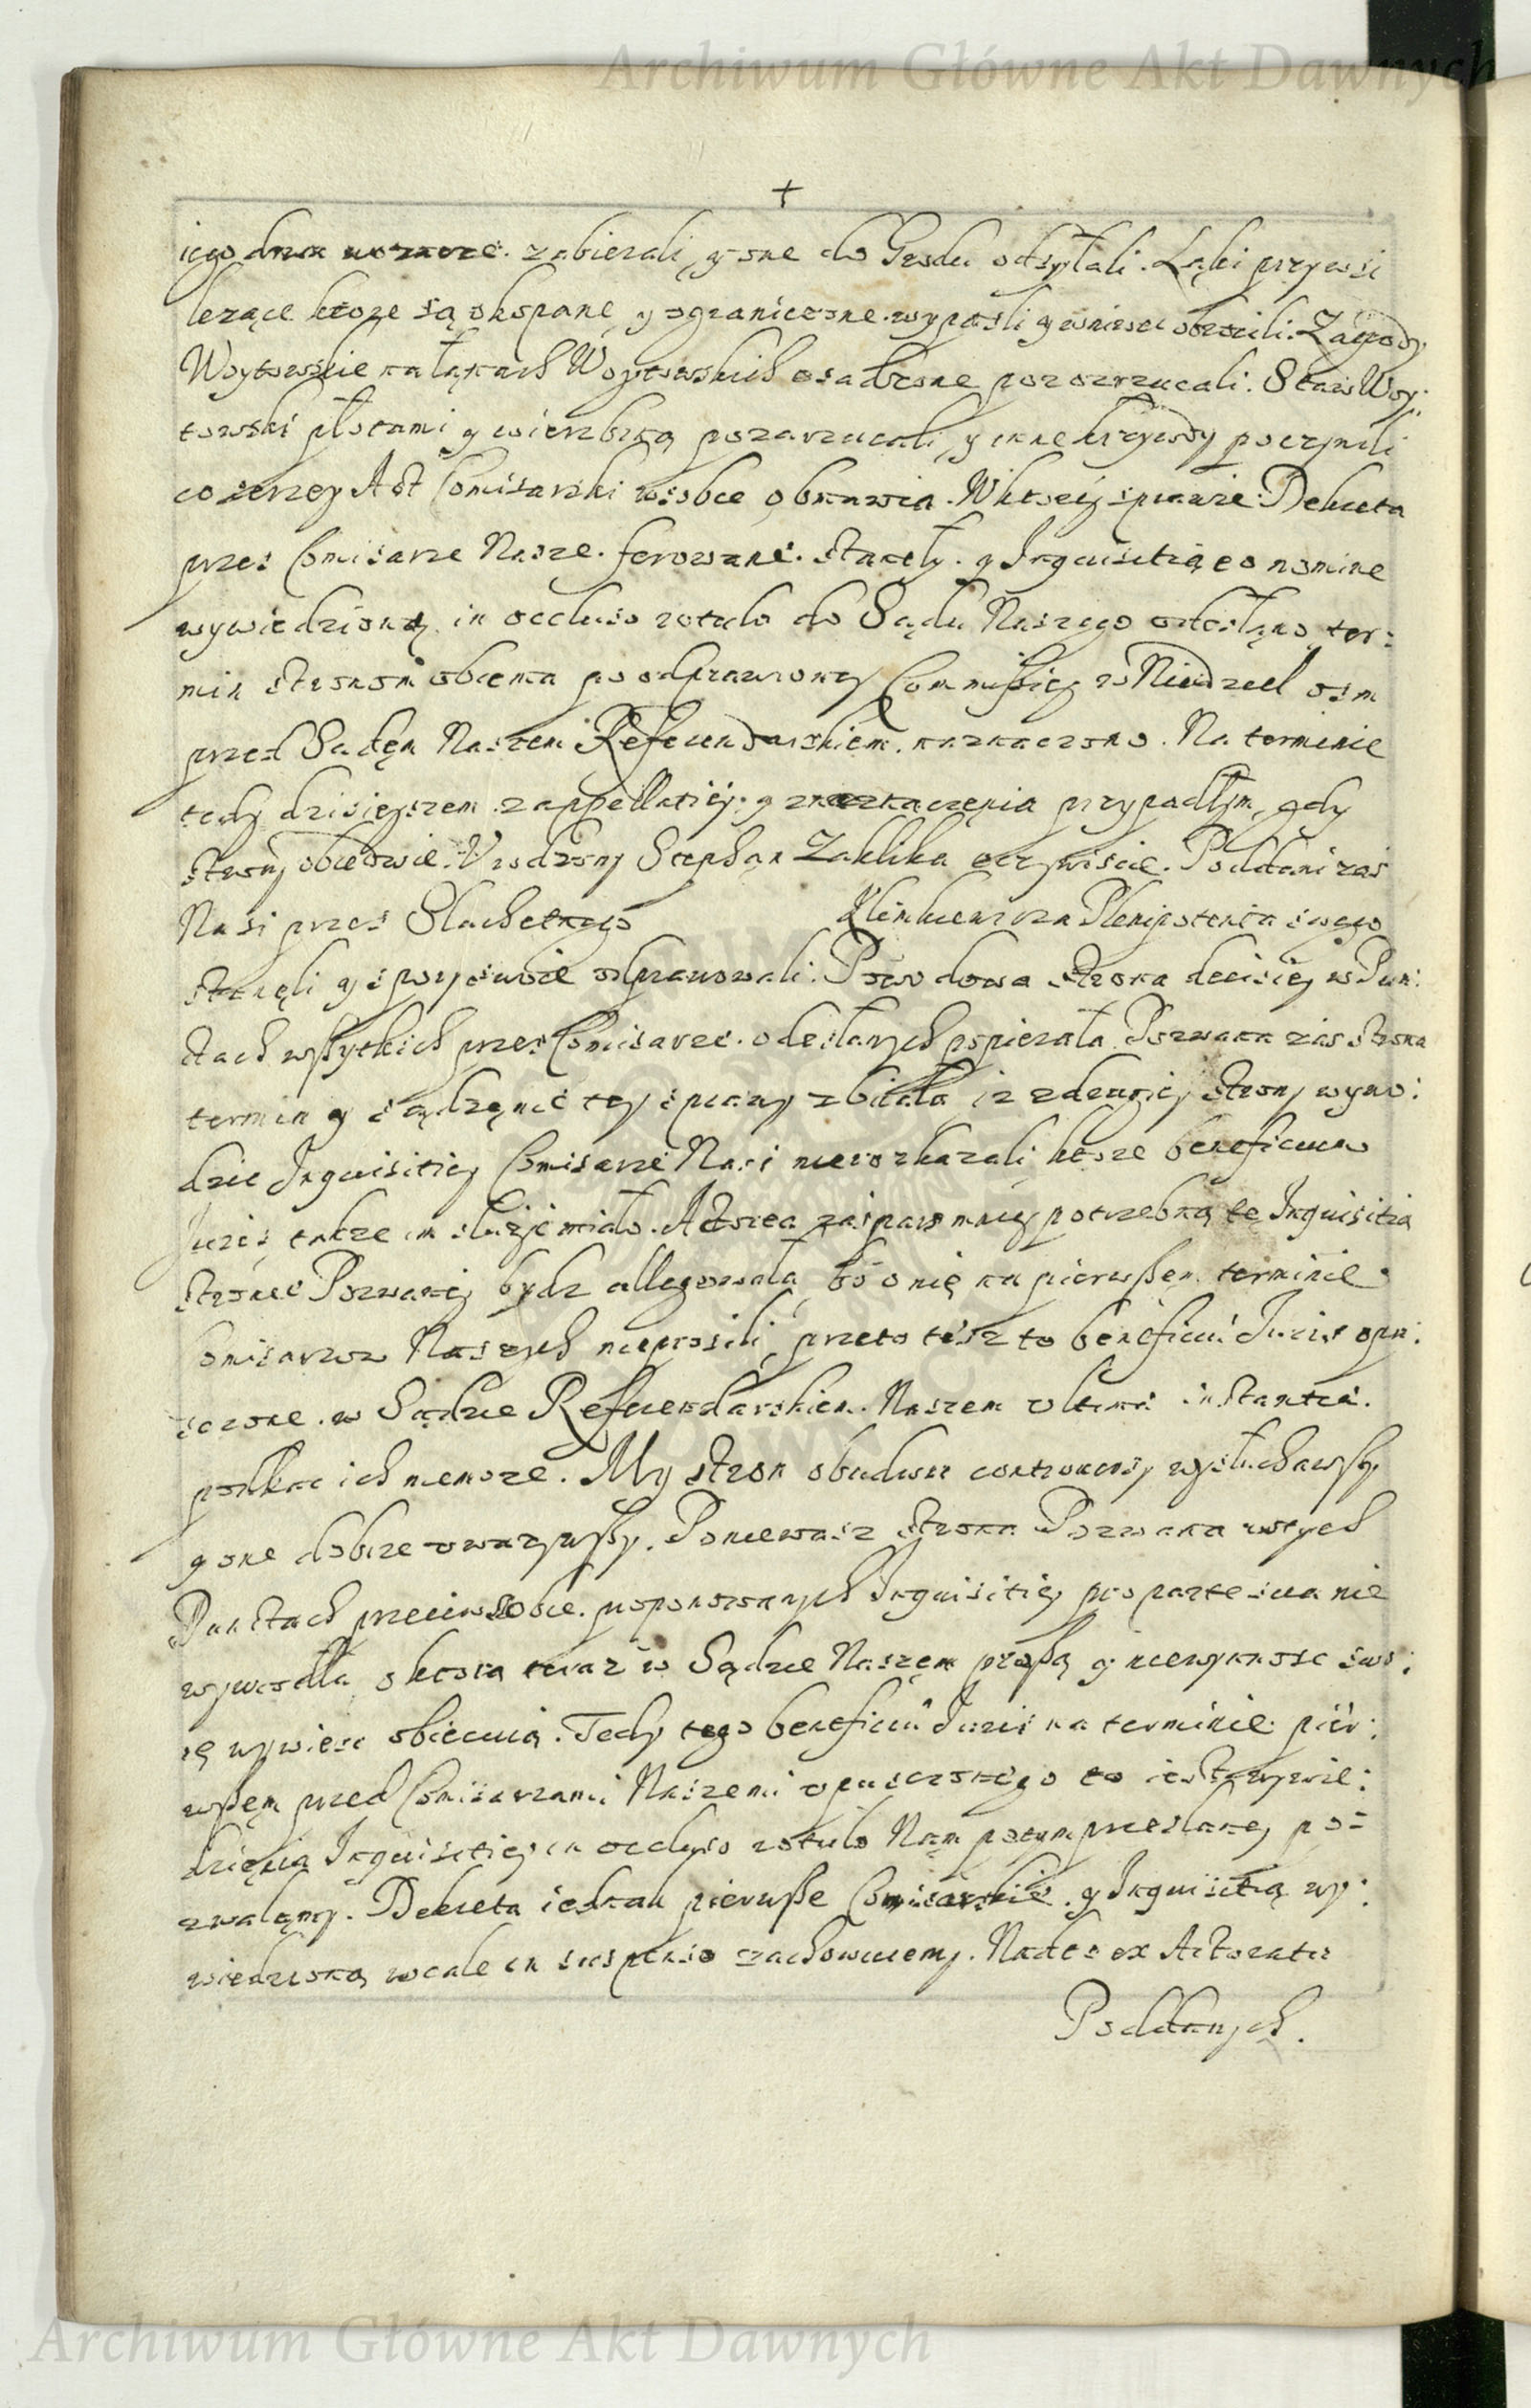 Archiwum Główne Akt Dawnych
+
iego drwa wozące zabierali, y one do Grodu odsyłali. Łąki przy wsi
lezące ktore są okopane, y ograniczone wypaśli y wniwec obrocili. Zagrody
Woytowskie na łąkach Woytowskich osadzone porozrzucali. Staw Woy:
towski płotami y wierzbiną pozarzucali, y inne krzywdy poczynili
co szerzey Act Comisarski w sobie obmawia. W ktorey sprawie Dekreta
przes Comisarze Nasze ferowane stanęły. y Inquisitią eo nomine
wywiedzioną in occluso rotulo do Sądu Naszego odesłano, ter:
min stronom obiema po odprawioney Commissiey w Niedziel osm
przed Sądem Naszem Referendarskiem naznaczono. Na terminie
tedy dzisieyszem z appellatiey y z naznaczenia przypadłym, gdy
strony obiedwie Urodzony Stephan Zaklika oczywiscie. Poddani zas
Nasi przes Slachetnego Klimkiewicza Plenipotenta swego
stanęli y spory swoie odprawowali. Powodowa strona decisiey w Pun:
ctach wszytkich przes Comisarze odesłanych popierała. Pozwana zas strona
termin y sądzenie tey sprawy zbiiała iz z drugiey strony wywo:
dzic Inquisitiey Comisarze Nasi nierozkazali, ktore beneficium
Juris takze im słuzyc miało. Actorea zas pars mniey potrzebną tę Inquisitią
stronie Pozwaney bydz allegowała, bo o nię na pierwszem terminie
Comisarzow Naszych nieprosili, przeto tesz to beneficiu Juris opu:
sczone w Sądzie Referendarskiem Naszem ultima instantia
potkac ich niemoze. My stron obudwu controwersy wysłuchawszy
y one dobrze uwazywszy. Poniewasz strona Pozwana w tych
Punctach przeciw sobie proponowanych Inquisitiey pro parte sua nie
wywiodła, o ktorą teraz w Sądzie Naszem proszą y niewynnosc swo:
ię wywiesc obiecuią. Tedy tego beneficiu Juris na terminie pier:
wszem przed Comisarzami Naszemi opusczonego to iest wywie:
dzienia Inquisitiey in occluso rotulo Nam potym przesłaney po=
zwalamy. Dekreta iednak pierwsze Comisarskie y Inquisitią wy:
wiedzioną wcale in suspenso zachowuiemy. Nadto ex Actoratu
Poddanych.
Archiwum Główne Akt Dawnych